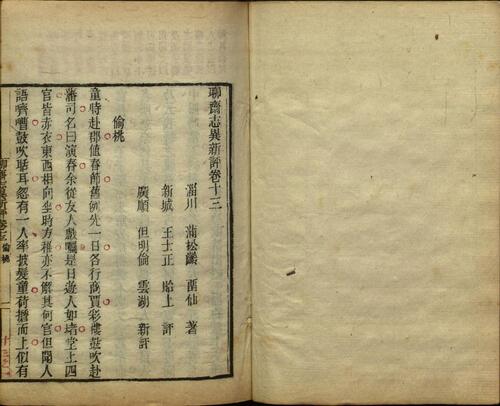 聊齋志異新評卷十三
淄川 蒲松齡 留仙 著
新城 王士正 貽上 評
廣順 但明倫 雲湖 新評
偷桃
童時赴郡值春節舊例先一日各行商賈彩樓鼓吹赴
藩司名曰演春余從友人戲矚是日遊人如堵堂上四
官皆赤衣東西相向坐時方稚亦不解其何官但聞人
語嚌嘈鼓吹聒耳忽有一人率披髮童荷擔而上似有
聊齋志異新評 卷十三 偷桃 一